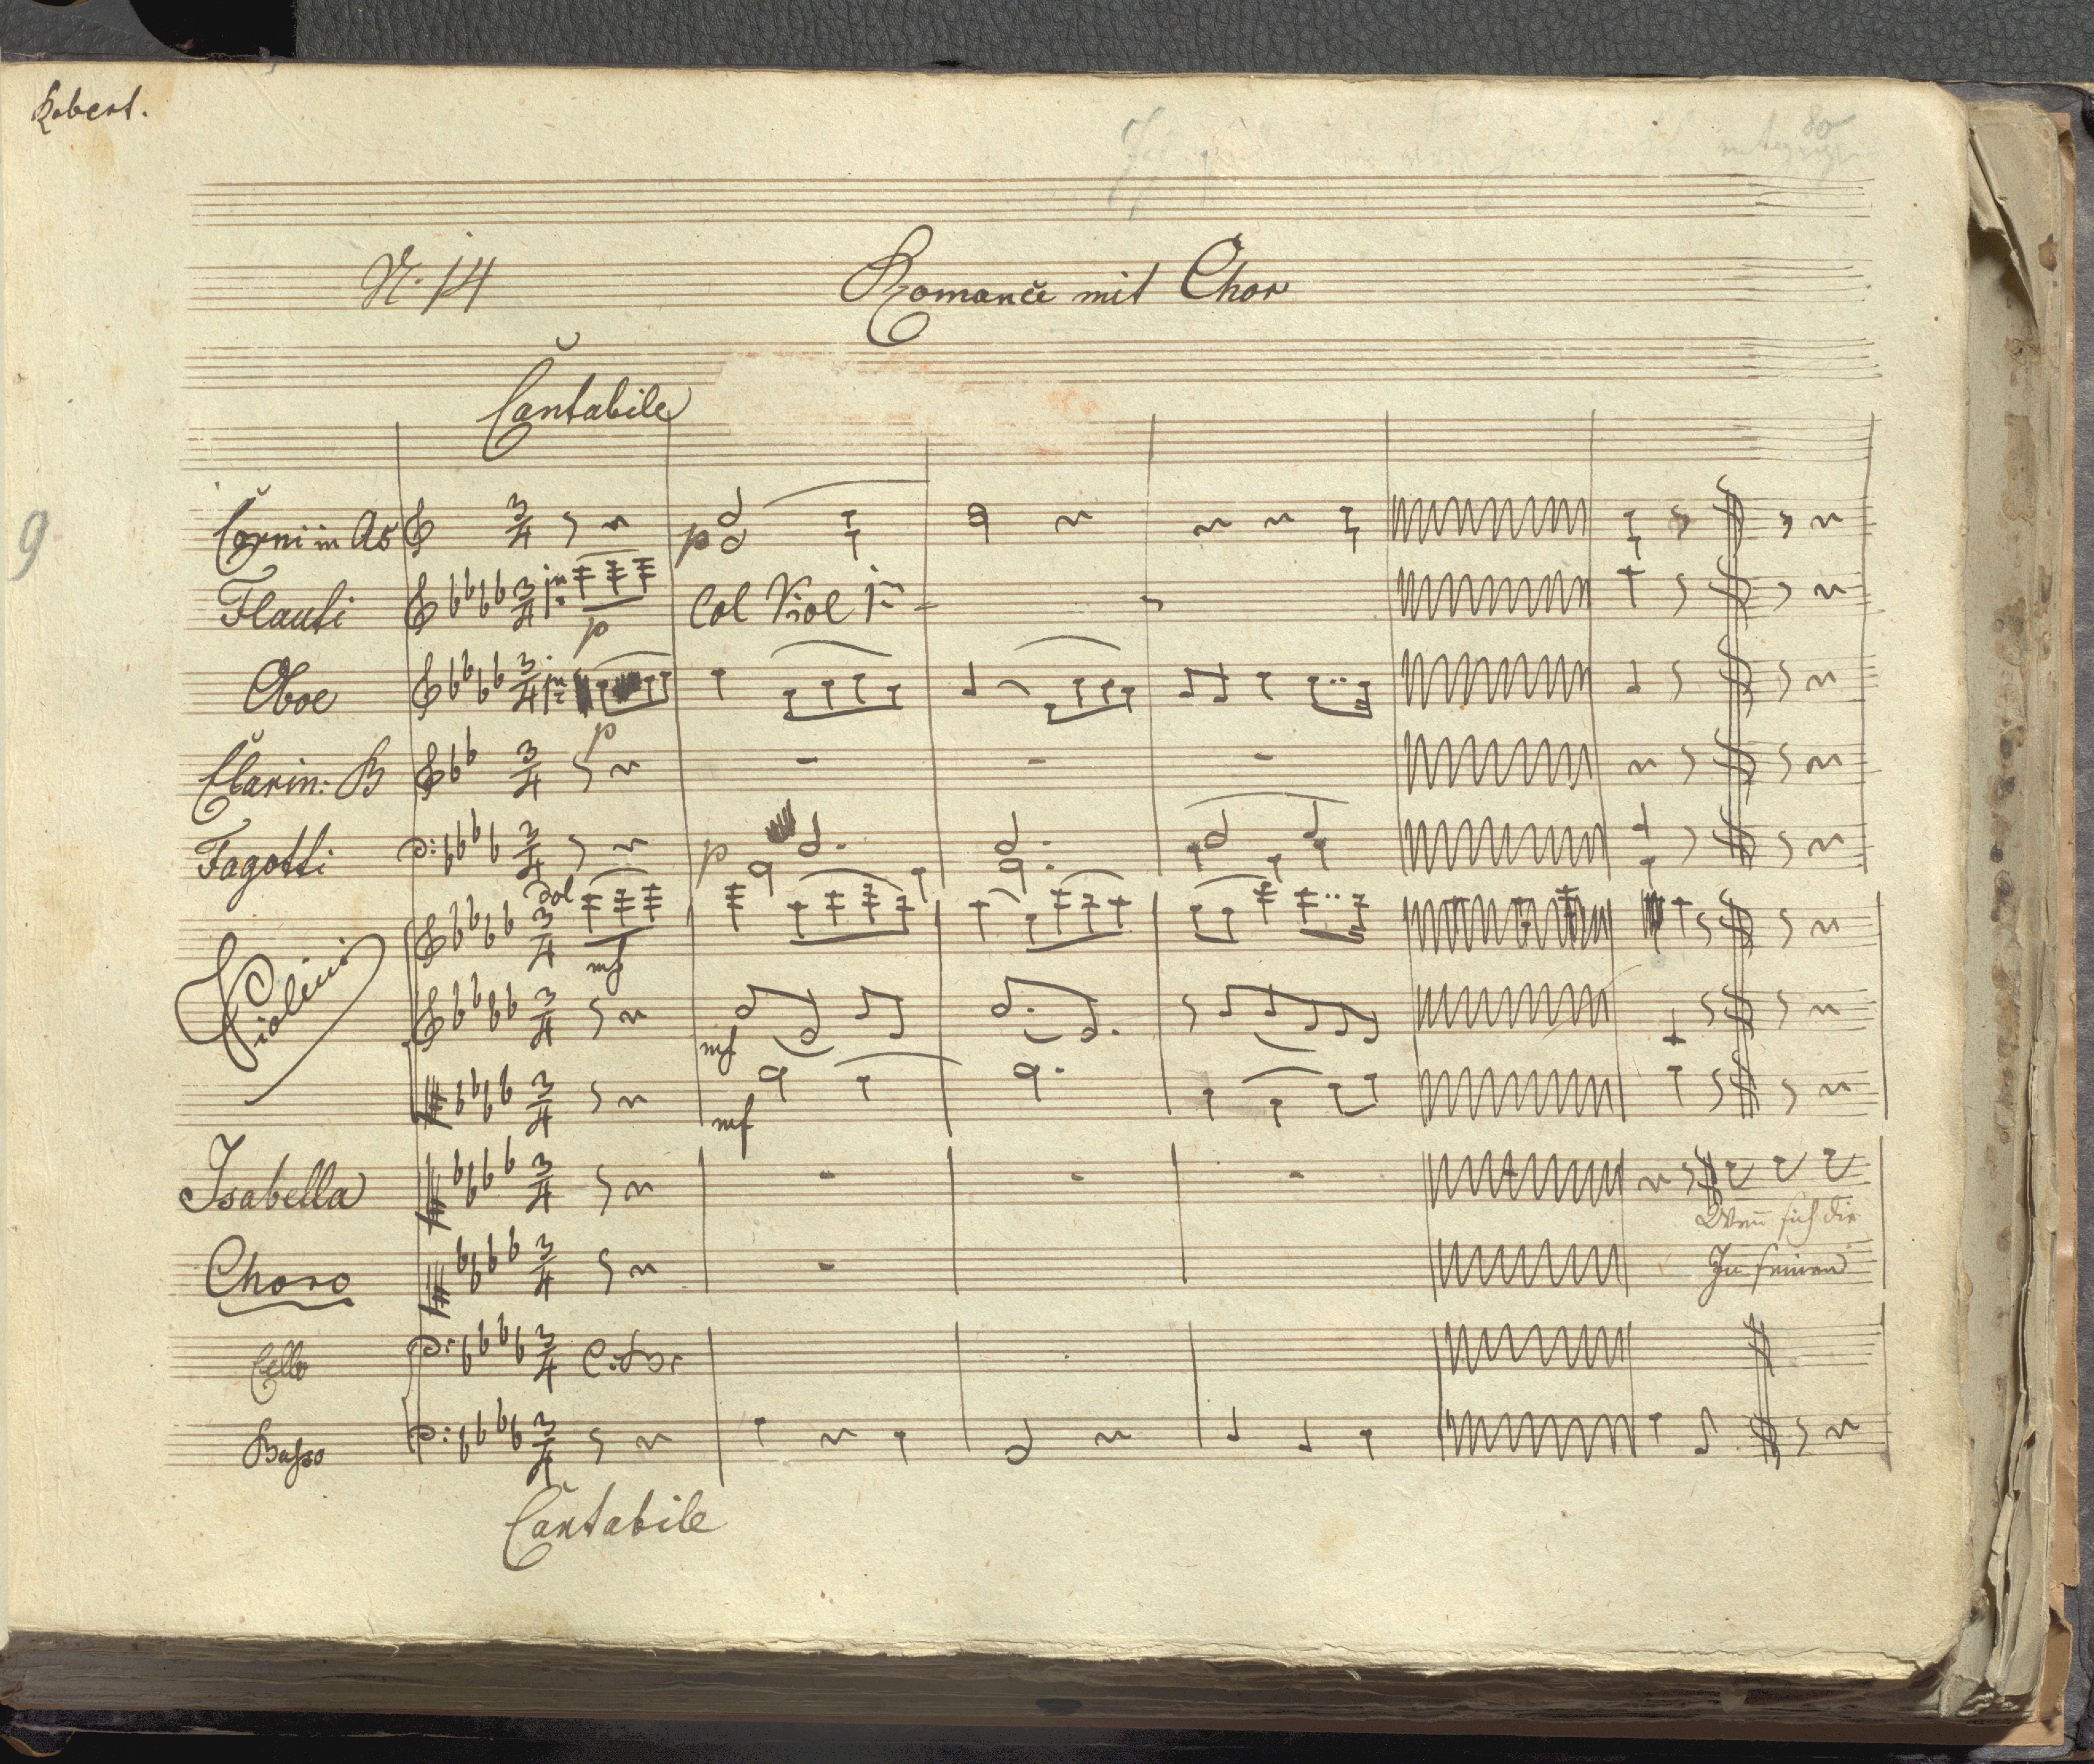 Robert.
80
N. 14
Romance mit Chor
Cantabile
9
Corni in As
p
Flauti
p
Col Viol 1mo
Oboe
p
Clarin: B
Fagotti
p
dol
mf
Violini
mf
mf
Isabella
Wenn sich die
Choro
In seinen
Cello
Basso
Cantabile